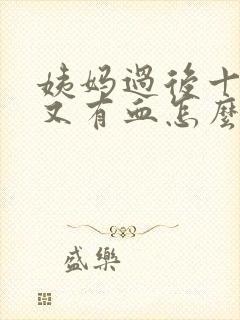 姨妈過後十
又有血怎麽
盛樂